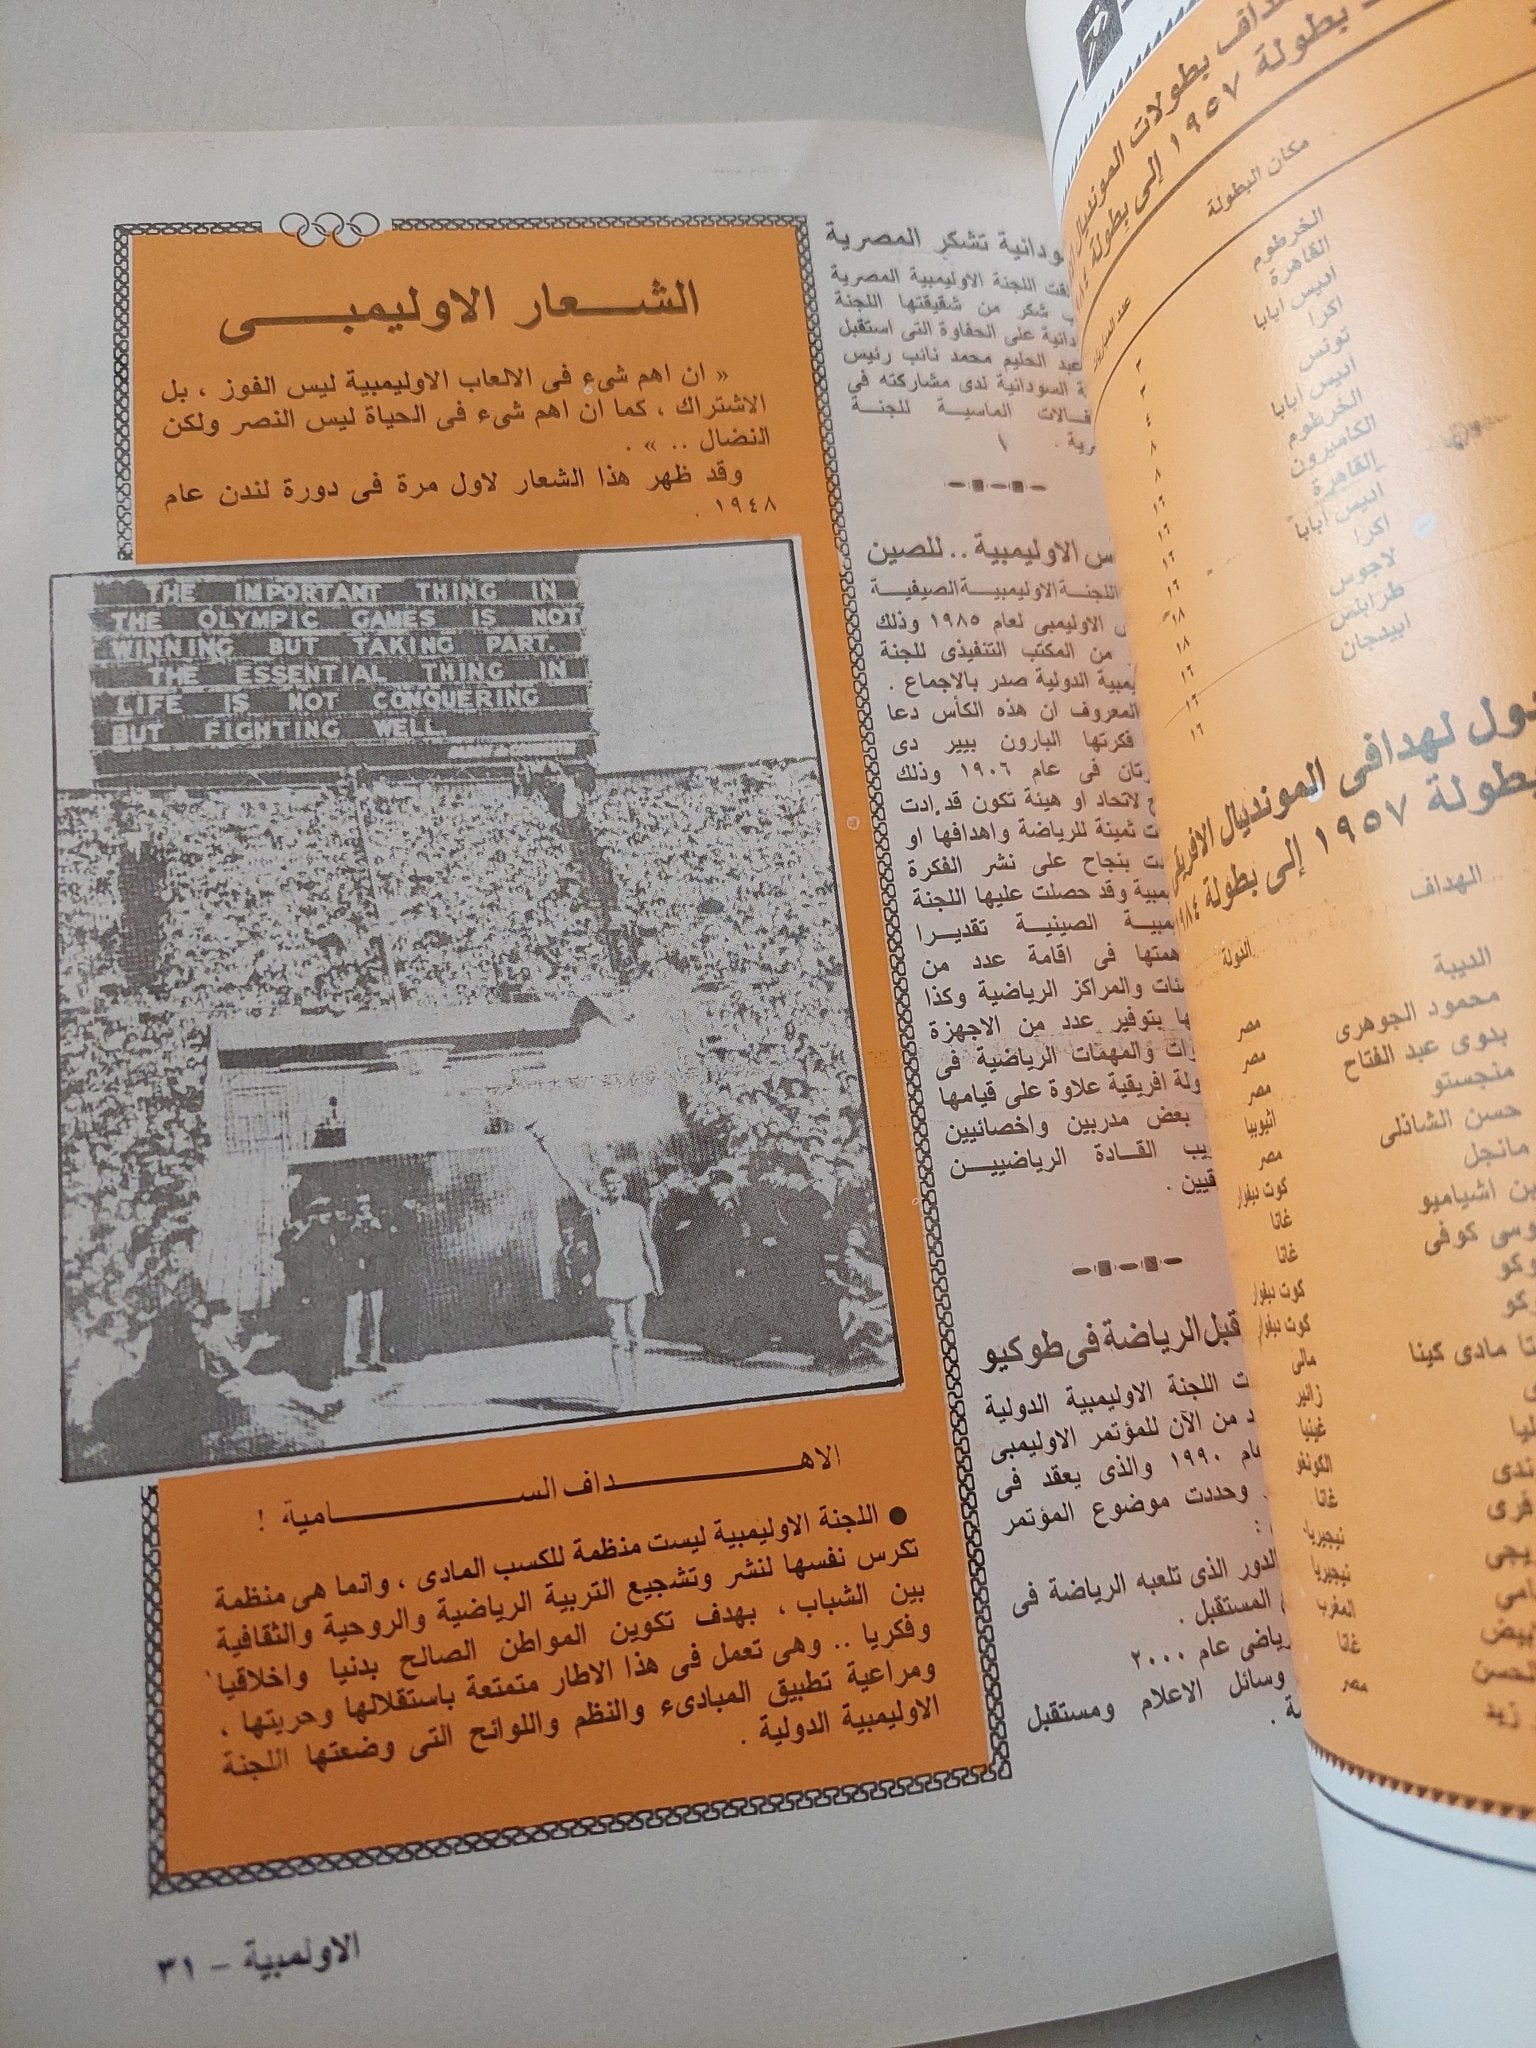 الشعار الاوليمبى
« ان اهم شىء فى الالعاب الاوليمبية ليس الفوز ، بل
الاشتراك ، كما ان اهم شىء فى الحياة ليس النصر ولكن
النضال .. » .
وقد ظهر هذا الشعار لاول مرة فى دورة لندن عام
١٩٤٨ .
THE IMPORTANT THING IN
THE OLYMPIC GAMES IS NOT
WINNING BUT TAKING PART.
THE ESSENTIAL THING IN
LIFE IS NOT CONQUERING
BUT FIGHTING WELL.
الاهداف السامية !
● اللجنة الاوليمبية ليست منظمة للكسب المادى ، وانما هى منظمة
تكرس نفسها لنشر وتشجيع التربية الرياضية والروحية والثقافية
بين الشباب ، بهدف تكوين المواطن الصالح بدنيا واخلاقيا
وفكريا .. وهى تعمل فى هذا الاطار متمتعة باستقلالها وحريتها ،
ومراعية تطبيق المبادىء والنظم واللوائح التى وضعتها اللجنة
الاوليمبية الدولية .
الاولمبية - ٣١
تشكر المصرية
اللجنة الاوليمبية المصرية
شكر من شقيقتها اللجنة
على الحفاوة التى استقبل
عبد الحليم محمد نائب رئيس
السودانية لدى مشاركته فى
الماسية للجنة
الاوليمبية .. للصين
اللجنة الاوليمبية الصيفية
الاوليمبى لعام ١٩٨٥ وذلك
من المكتب التنفيذى للجنة
الدولية صدر بالاجماع .
المعروف ان هذه الكأس دعا
فكرتها البارون بيير دى
فى عام ١٩٠٦ وذلك
لاتحاد او هيئة تكون قد ادت
ثمينة للرياضة واهدافها او
بنجاح على نشر الفكرة
وقد حصلت عليها اللجنة
الصينية تقديرا
فى اقامة عدد من
والمراكز الرياضية وكذا
بتوفير عدد من الاجهزة
والمهمات الرياضية فى
افريقية علاوة على قيامها
بعض مدربين واخصائيين
القادة الرياضيين
قبل الرياضة فى طوكيو
اللجنة الاوليمبية الدولية
من الآن للمؤتمر الاوليمبى
١٩٩٠ والذى يعقد فى
وحددت موضوع المؤتمر
:
الدور الذى تلعبه الرياضة فى
المستقبل .
عام ٢٠٠٠
وسائل الاعلام ومستقبل
بطولات المونديال
بطولة ١٩٥٧ إلى بطولة
مكان البطولة
الخرطوم
القاهرة
اديس ابابا
اكرا
تونس
اديس ابابا
الخرطوم
الكاميرون
القاهرة
اديس ابابا
اكرا
لاجوس
طرابلس
ابيدجان
٢
٢
٤
٨
٨
١٦
١٦
١٦
١٦
١٨
١٨
١٦
١٦
١٦
لهدافى المونديال
بطولة ١٩٥٧ إلى بطولة ١٩٨٤
الهداف الدولة
الديبة مصر
محمود الجوهرى مصر
بدوى عبد الفتاح مصر
منجستو اثيوبيا
حسن الشاذلى مصر
مانجل كوت ديفوار
اشياميو غانا
كوفى غانا
كوت ديفوار
كوت ديفوار
مادى كيتا مالى
زائير
غينيا
الكونغو
غانا
نيجيريا
نيجيريا
المغرب
غانا
زيد مصر